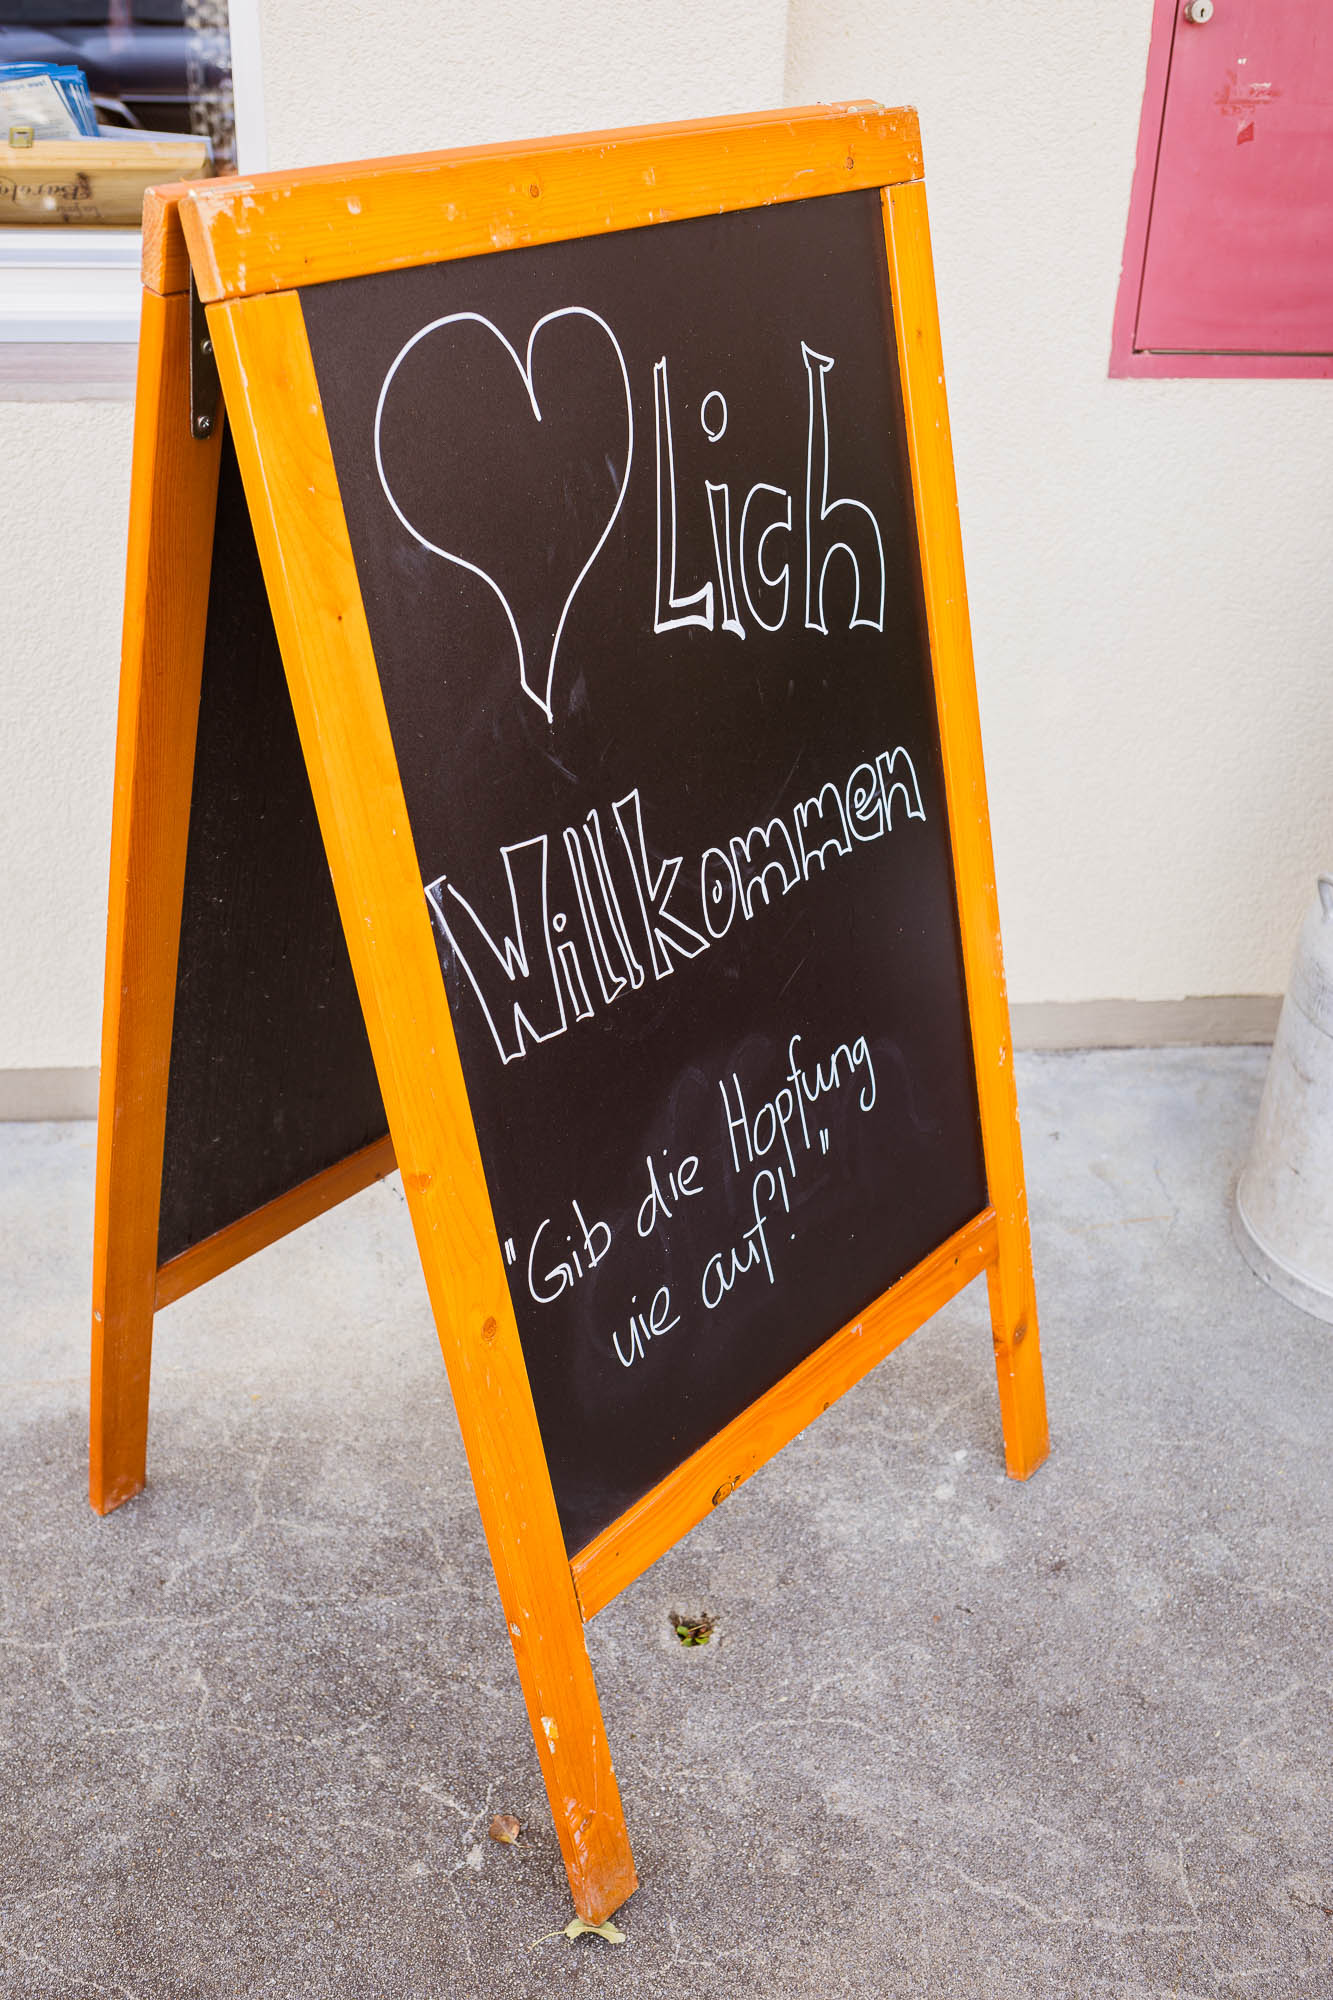 Lich
Willkommen
"Gib die Hopfung
nie auf!"
Barolo